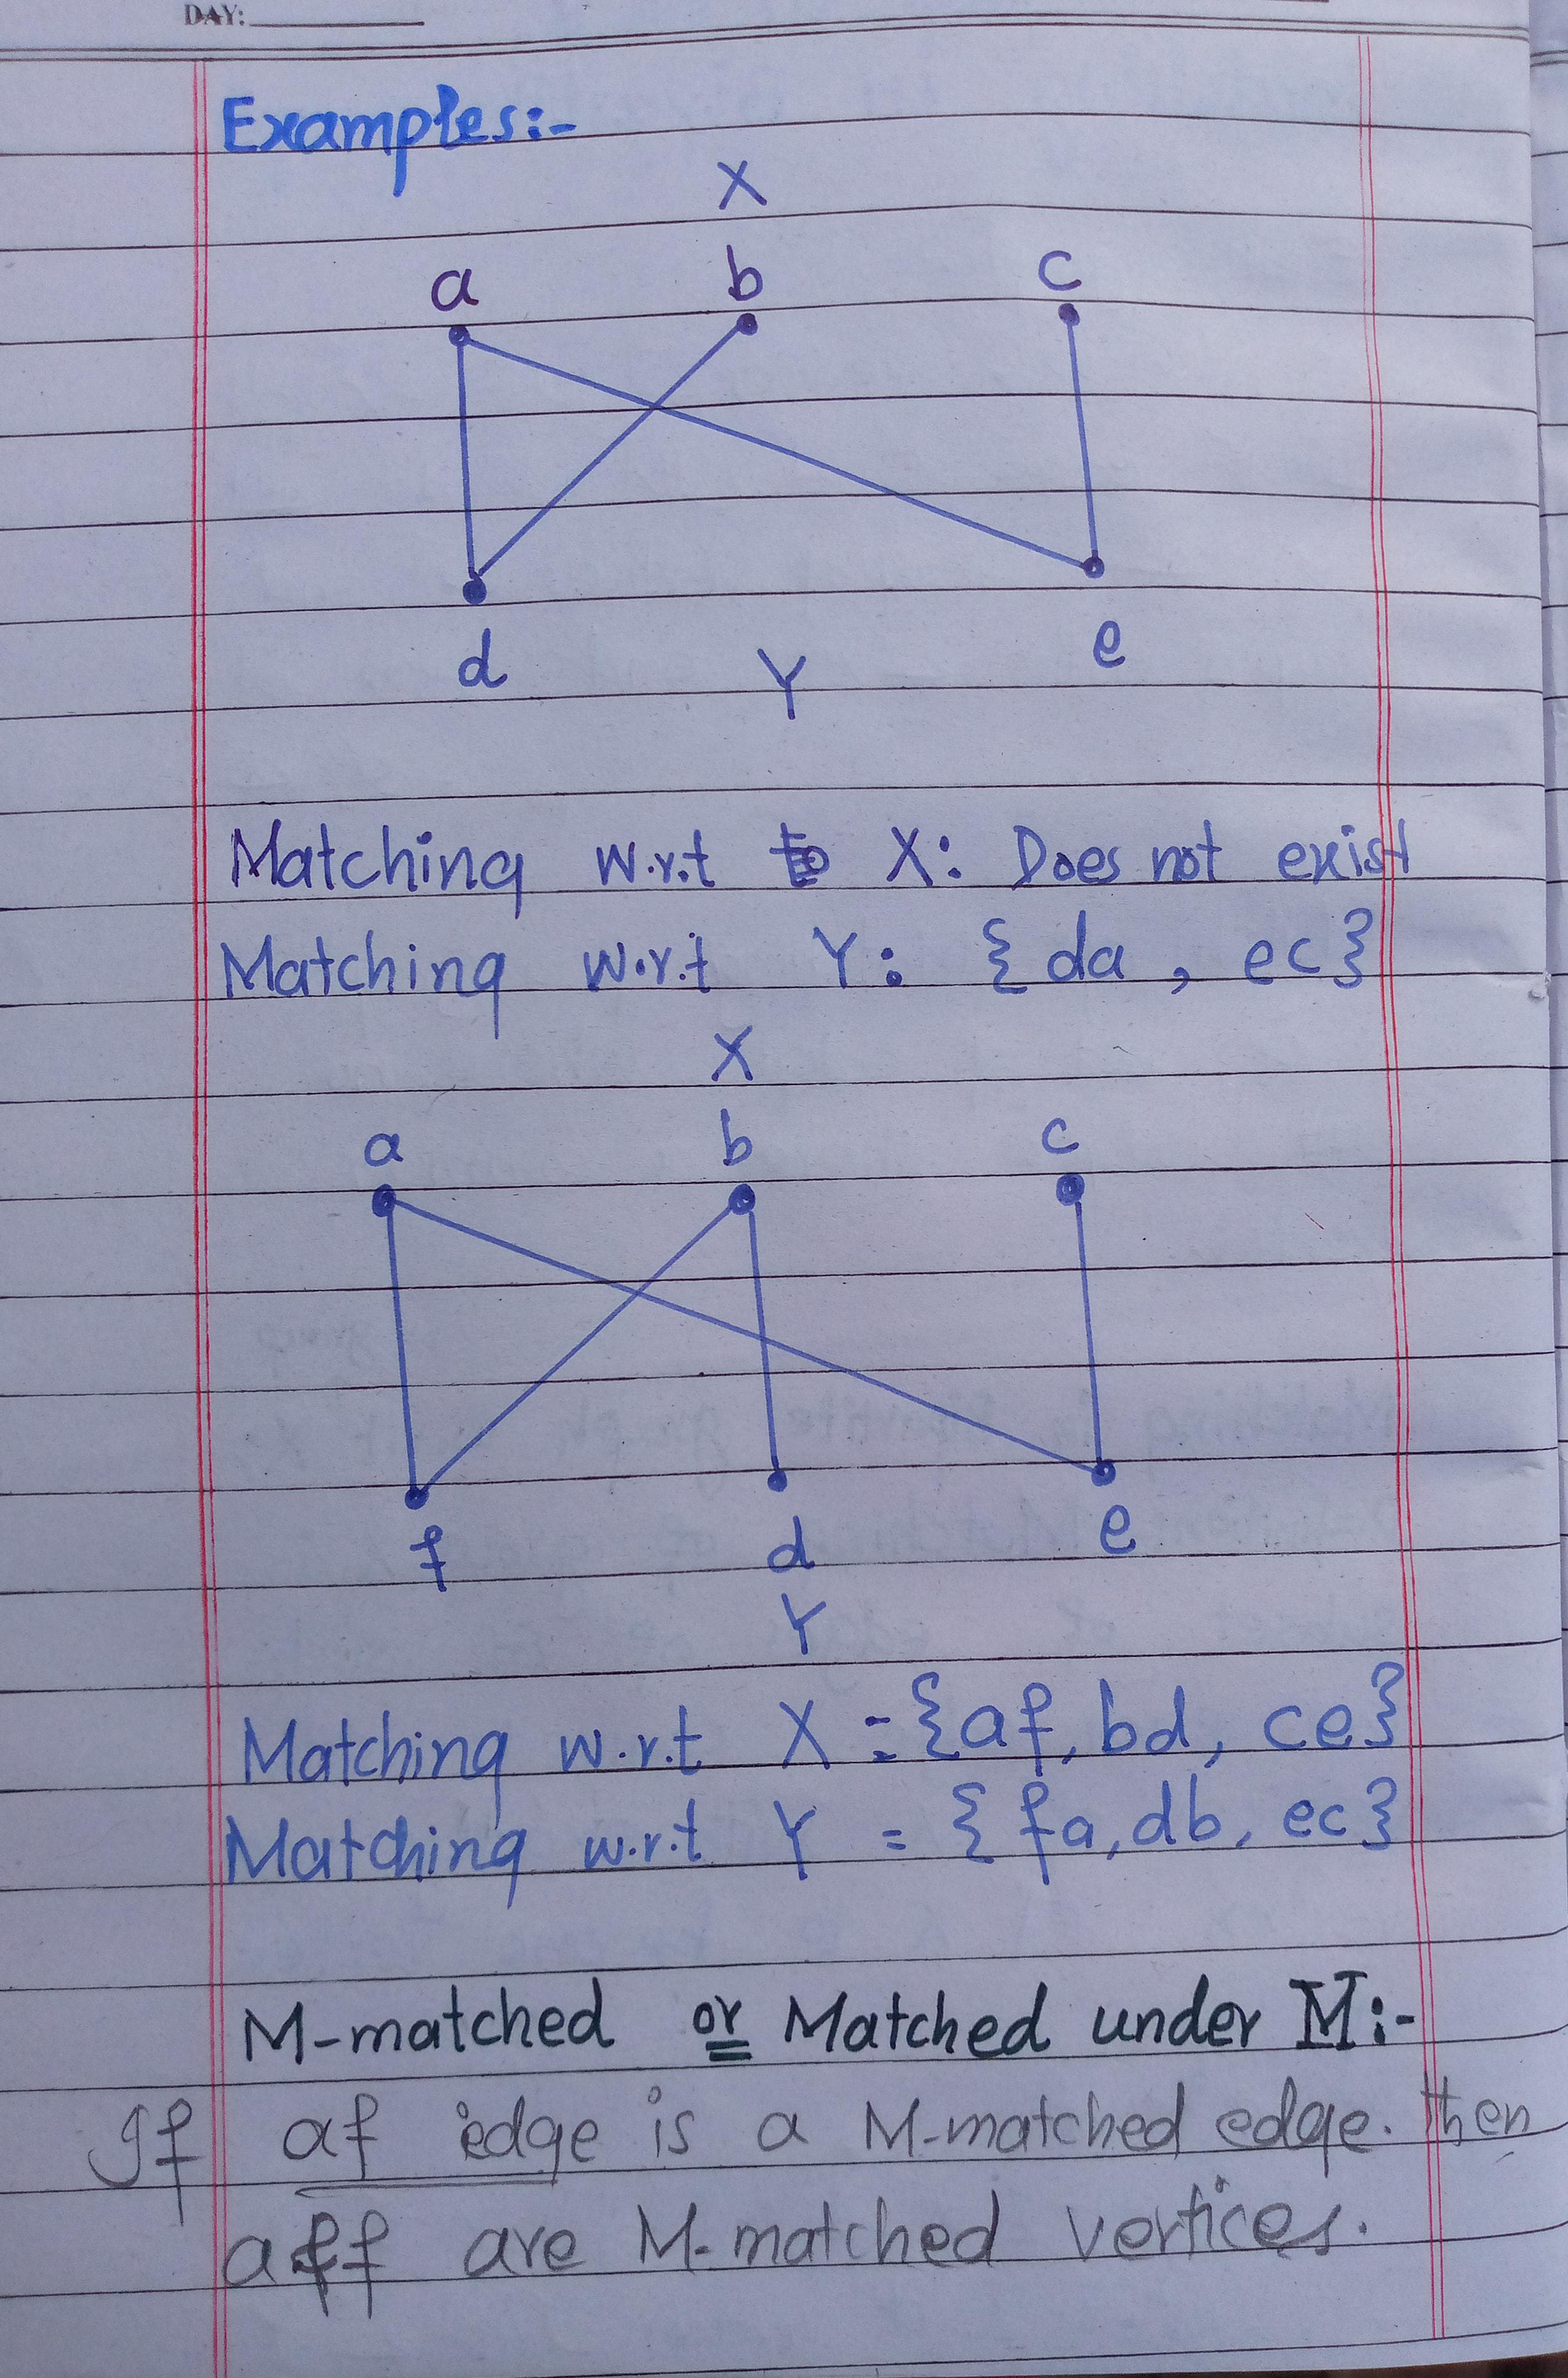 DAY:
Examples:-
X
a b c
d e
Y
Matching w.r.t X: Does not exist
Matching w.r.t Y: {da, ec}
X
a b c
f d e
Y
Matching w.r.t X = {af, bd, ce}
Matching w.r.t Y = {fa, db, ec}
M-matched or Matched under M:-
If af edge is a M-matched edge. then
a & f are M-matched vertices.